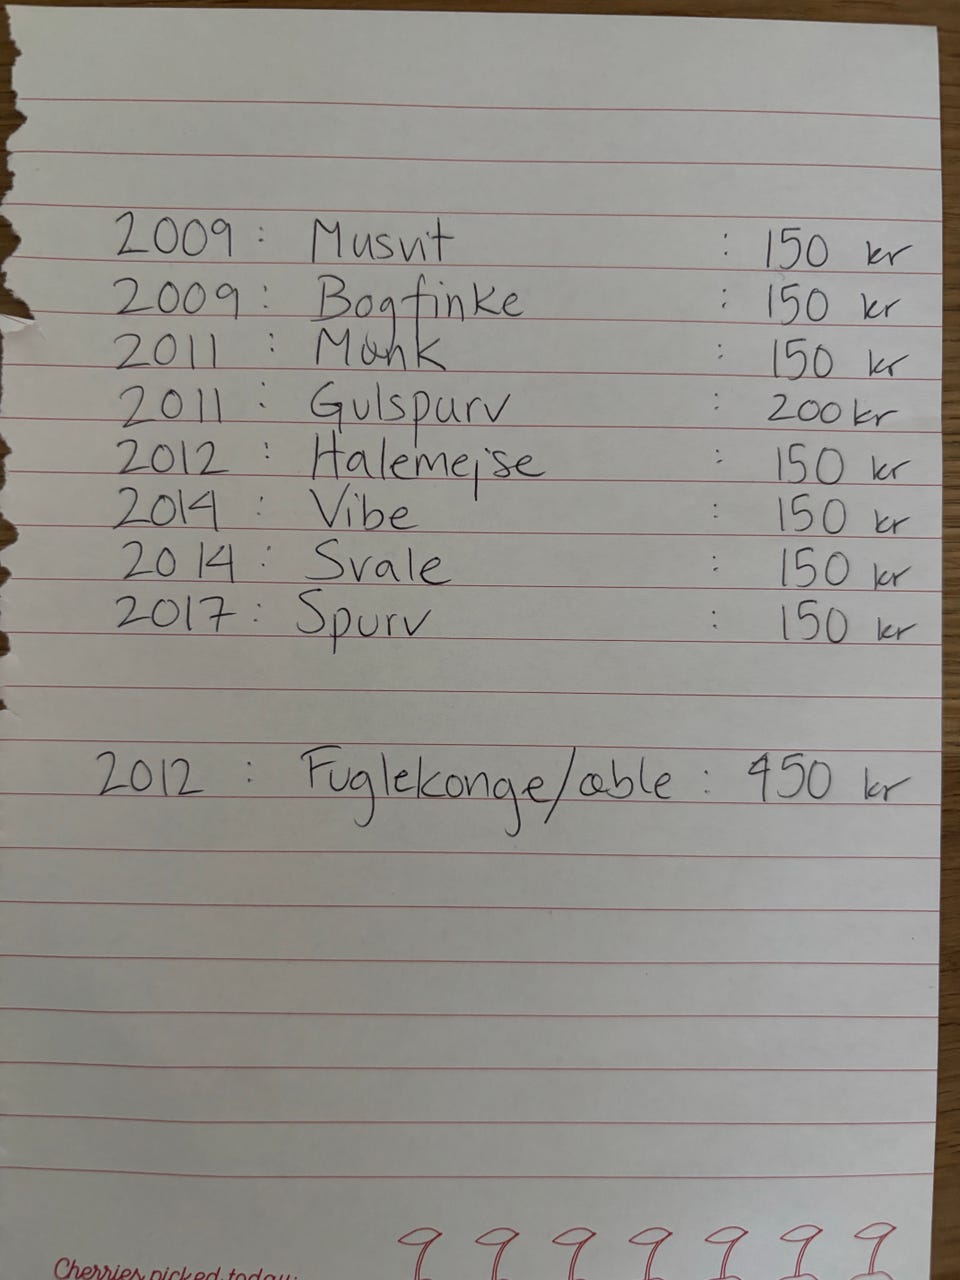 2009 : Musvit : 150 kr
2009 : Bogfinke : 150 kr
2011 : Munk : 150 kr
2011 : Gulspurv : 200 kr
2012 : Halemejse : 150 kr
2014 : Vibe : 150 kr
2014 : Svale : 150 kr
2017 : Spurv : 150 kr
2012 : Fuglekonge/æble : 450 kr
Cherries picked today: